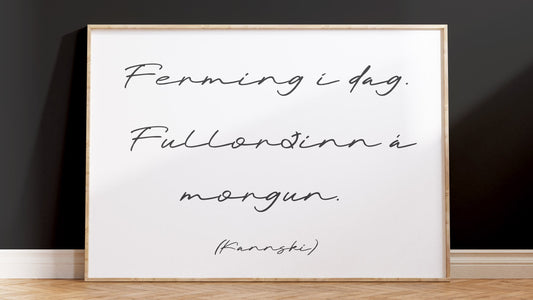 Ferming í dag.
Fullorðinn á
morgun.
(Kannski)